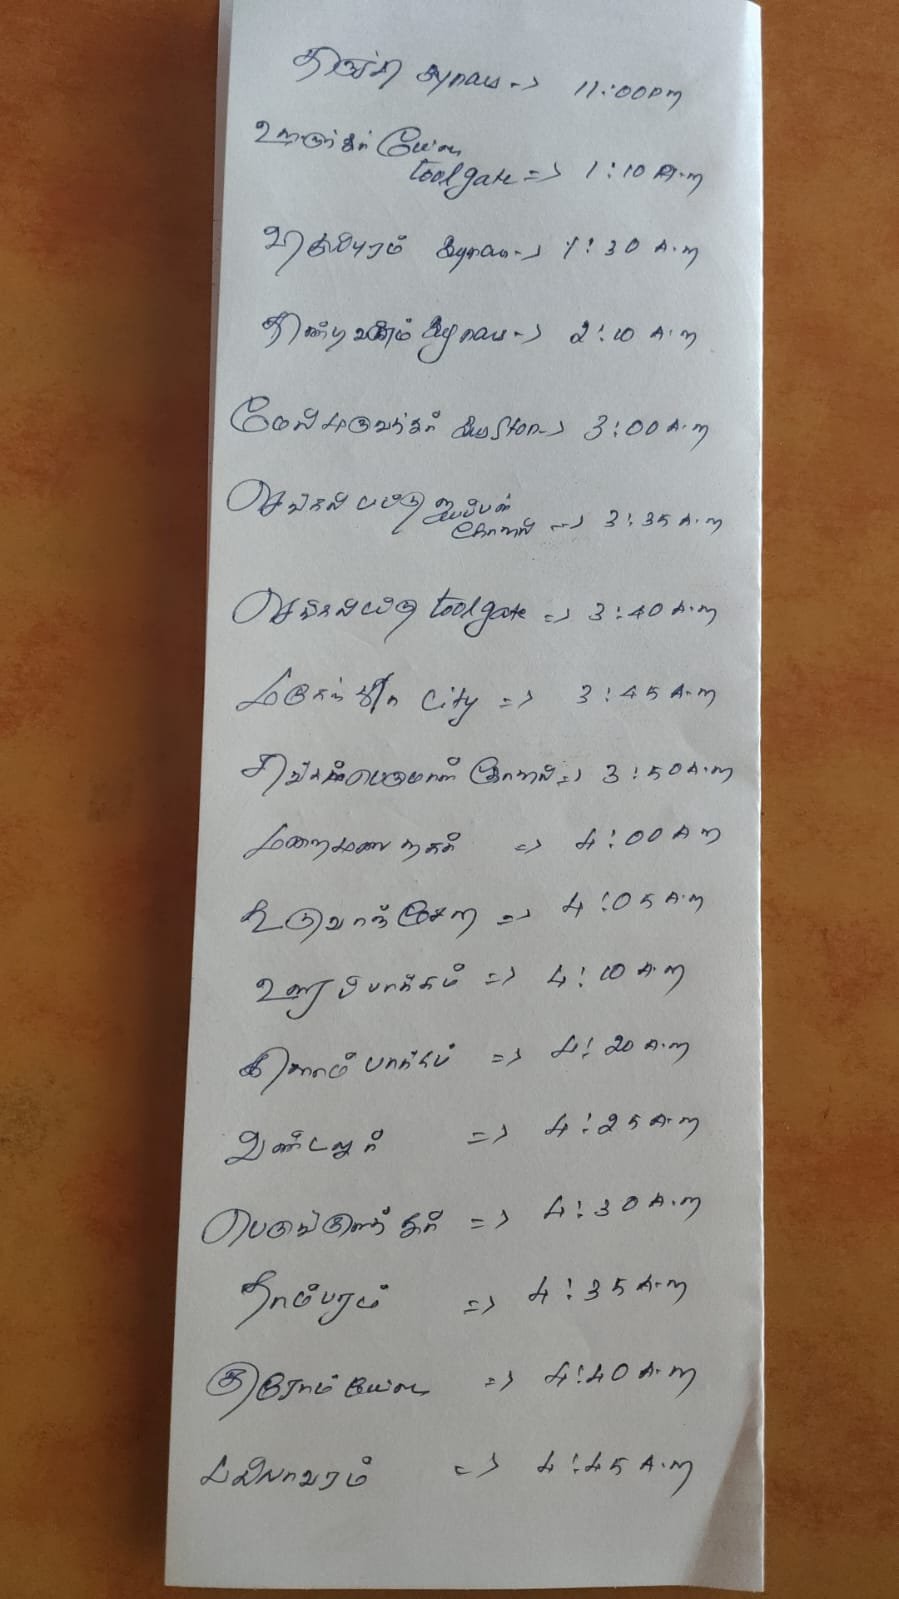 திருச்சி => 11:00pm
உளுந்தூர்பேட்டை
toolgate => 1:10 A.m
=> 1:30 A.m
திண்டிவனம் => 2:10 A.m
மேல்மருவத்தூர் => 3:00 A.m
செங்கல்பட்டு ஐயப்பன்
கோவில் => 3:35 A.m
செங்கல்பட்டு toolgate => 3:40 A.m
City => 3:45 A.m
சிங்கப்பெருமாள் கோவில் => 3:50 A.m
மறைமலை நகர் => 4:00 A m
கூடுவாஞ்சேரி => 4:05 A.m
ஊரப்பாக்கம் => 4:10 A.m
கிளாம்பாக்கம் => 4:20 A.m
வண்டலூர் => 4:25 A.m
பெருங்களத்தூர் => 4:30 A.m
தாம்பரம் => 4:35 A.m
குரோம்பேட்டை => 4:40 A.m
பல்லாவரம் => 4:45 A.m